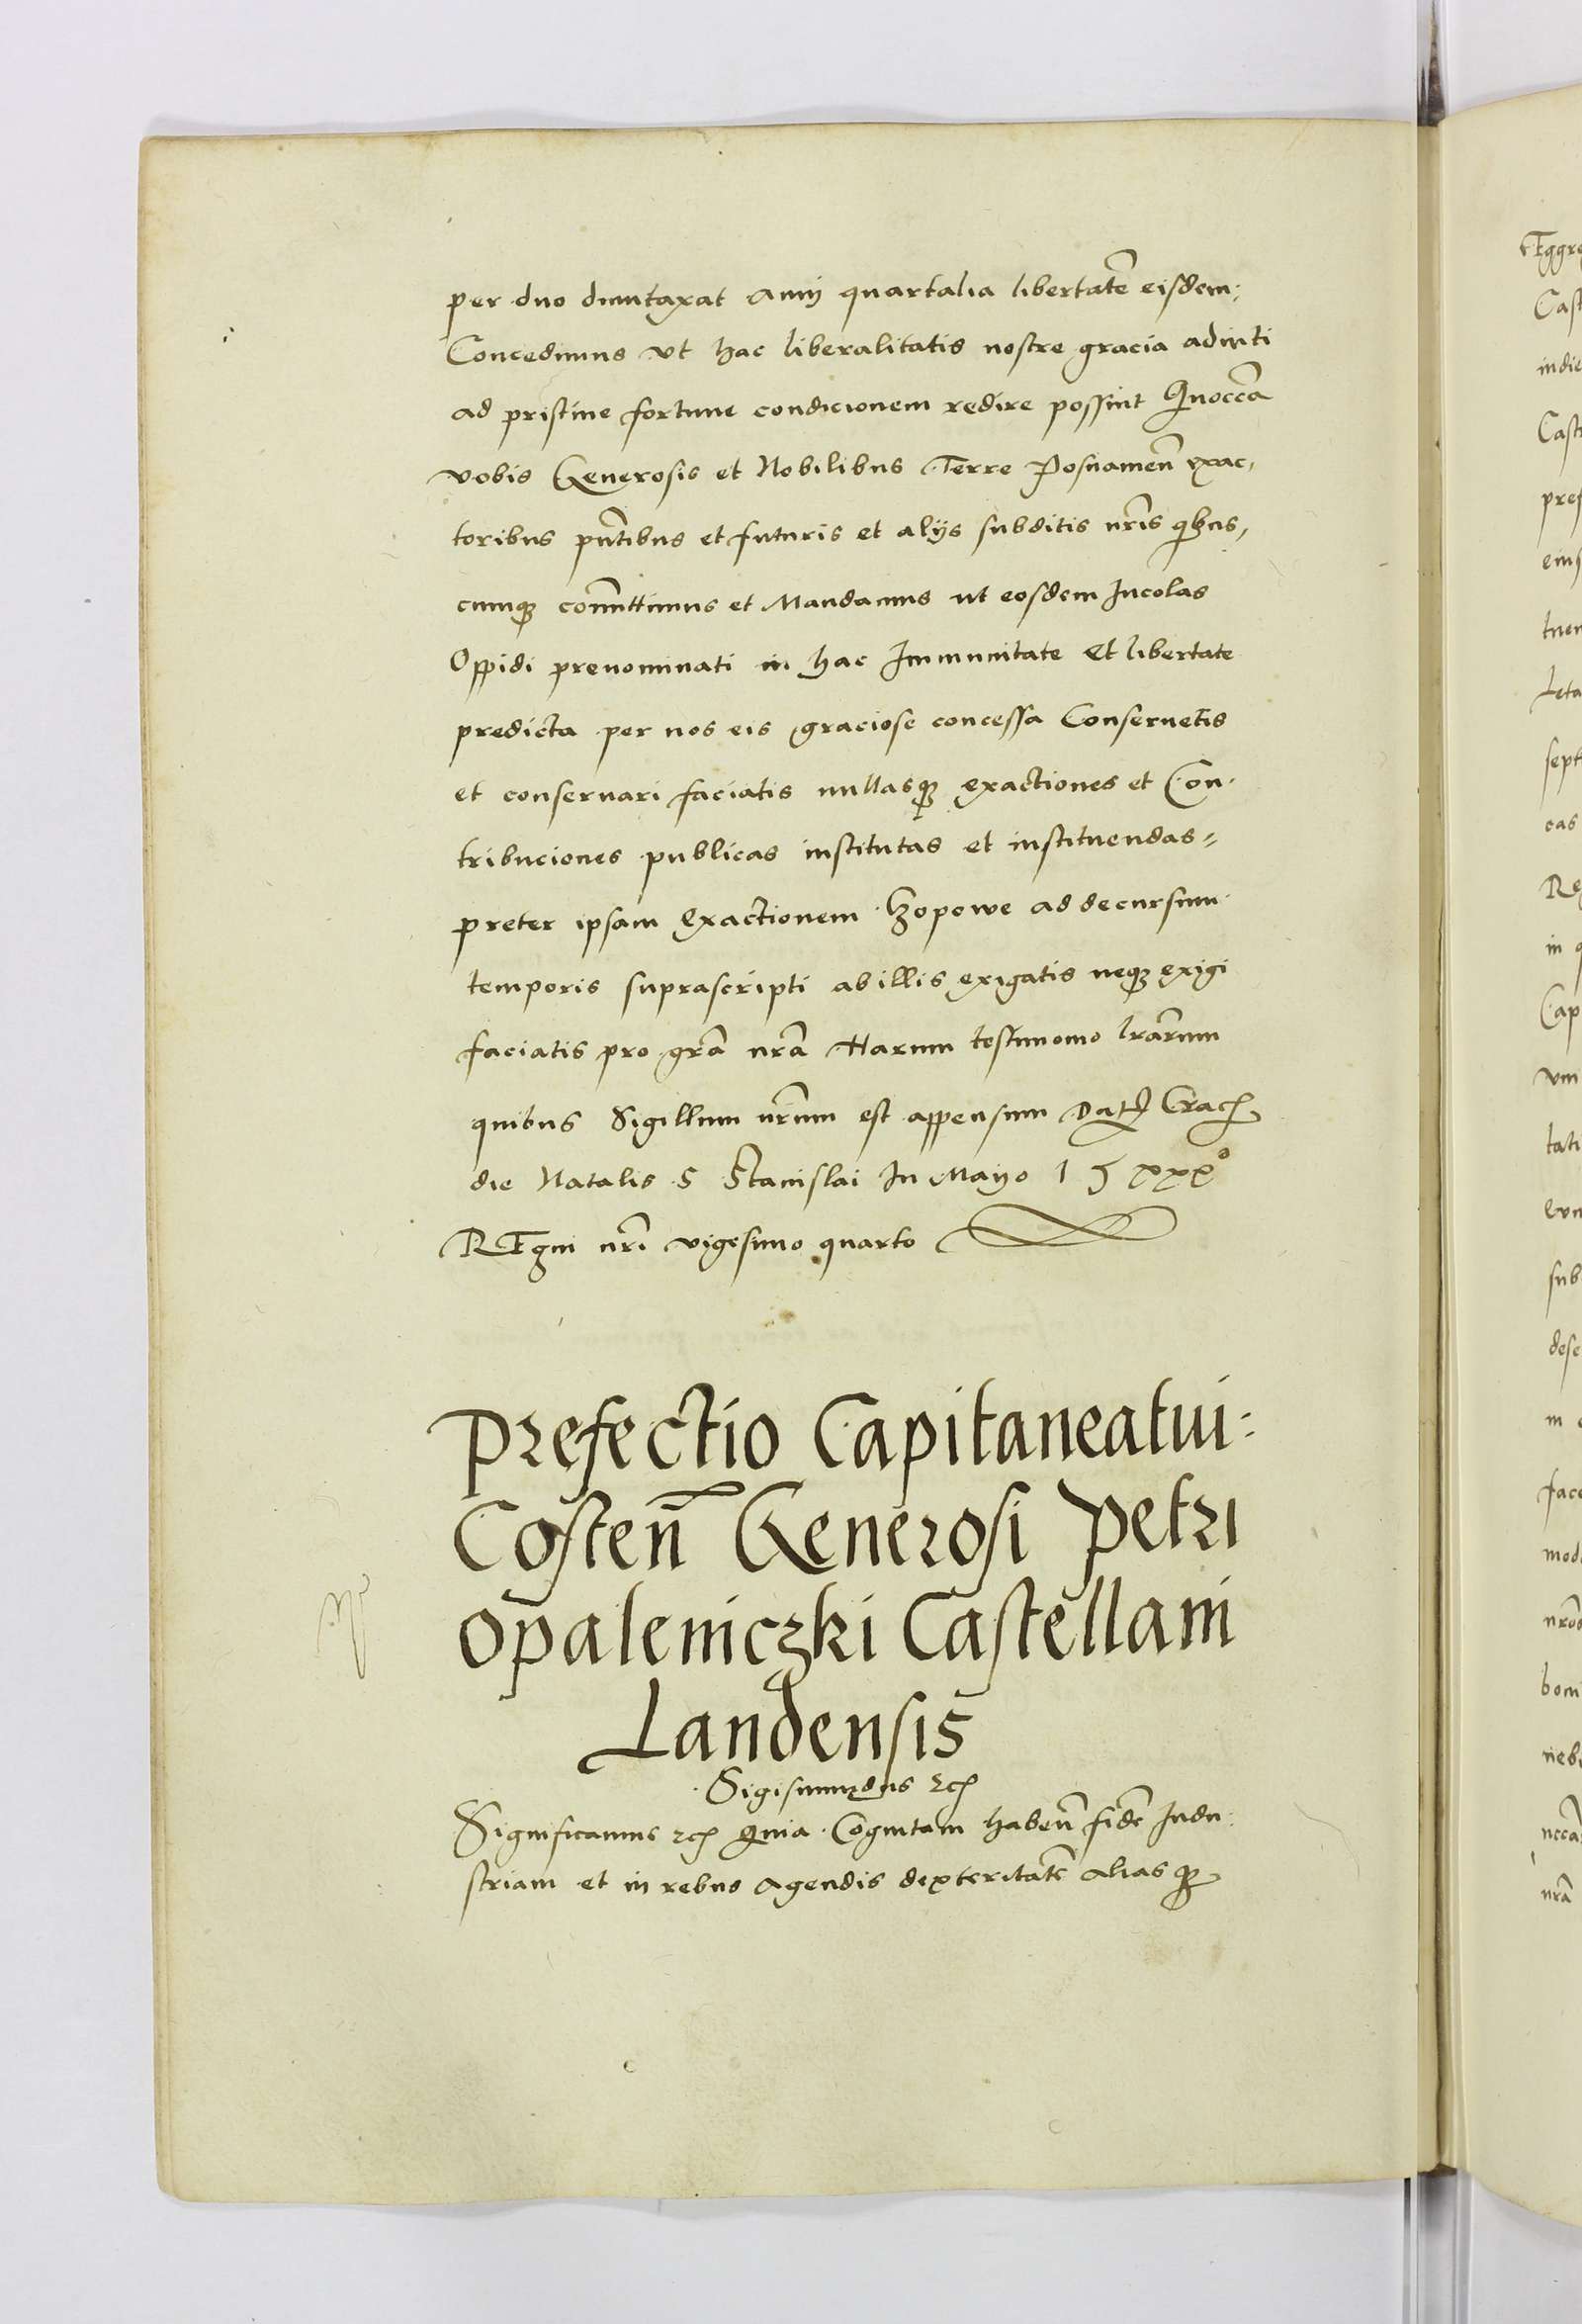 per duo dumtaxat annj quartalia libertatē eisdem:
Concedimus vt hac liberalitatis nostre gracia adiuti
ad pristine fortune condicionem redire possint Quoccā
vobis Generosis et Nobilibus Terre Posnamen̄ exac,
toribus pn̄tibus et futuris et alijs subditis nr̄is qbus,
cumq; com̄ittimus et Mandamus ut eosdem Incolas
Oppidi prenominati in hac Immunitate Et libertate
predicta per nos eis graciose concessa Conseruetis
et conseruari faciatis nullasq; exactiones et Con-
tribuciones publicas institutas et instituendas=
preter ipsam Exactionem Czopowe ad decursum
temporis suprascripti ab illis exigatis neq; exigi
faciatis pro gr̄a nr̄a Harum testimonio lr̄arum
quibus Sigillum nr̄um est appensum Dat Crac
die Natalis S Stanislai In Mayo 15xxx°
REgni nr̄i vigesimo quarto
Prefectio Capitaneatui:
Costen̄ Generosi Petri
Opaleniczki Castellani
Landensis
Sigismundus etc
Significamus etc Quia Cognitam haben̄ fidē Indu:
striam et in rebus Agendis dexteritatē Aliasq;
Eggre
Cast
indie
Cast
pres
eius
tuen
Leta
sept
cas
Re
in q
Cap
vni
tati
sub
dese
in
face
mod
boni
neb
nr̄a